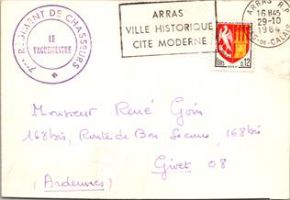 7ème REGIMENT DE CHASSEURS
LE
VAGUEMESTRE
ARRAS
VILLE HISTORIQUE
CITE MODERNE
ARRAS
16H45
29-10
1964
PAS-DE-CALAIS
0,12
Monsieur René Goin
168bis, Route de Bon Secours, 168bis
Givet 08
(Ardennes)